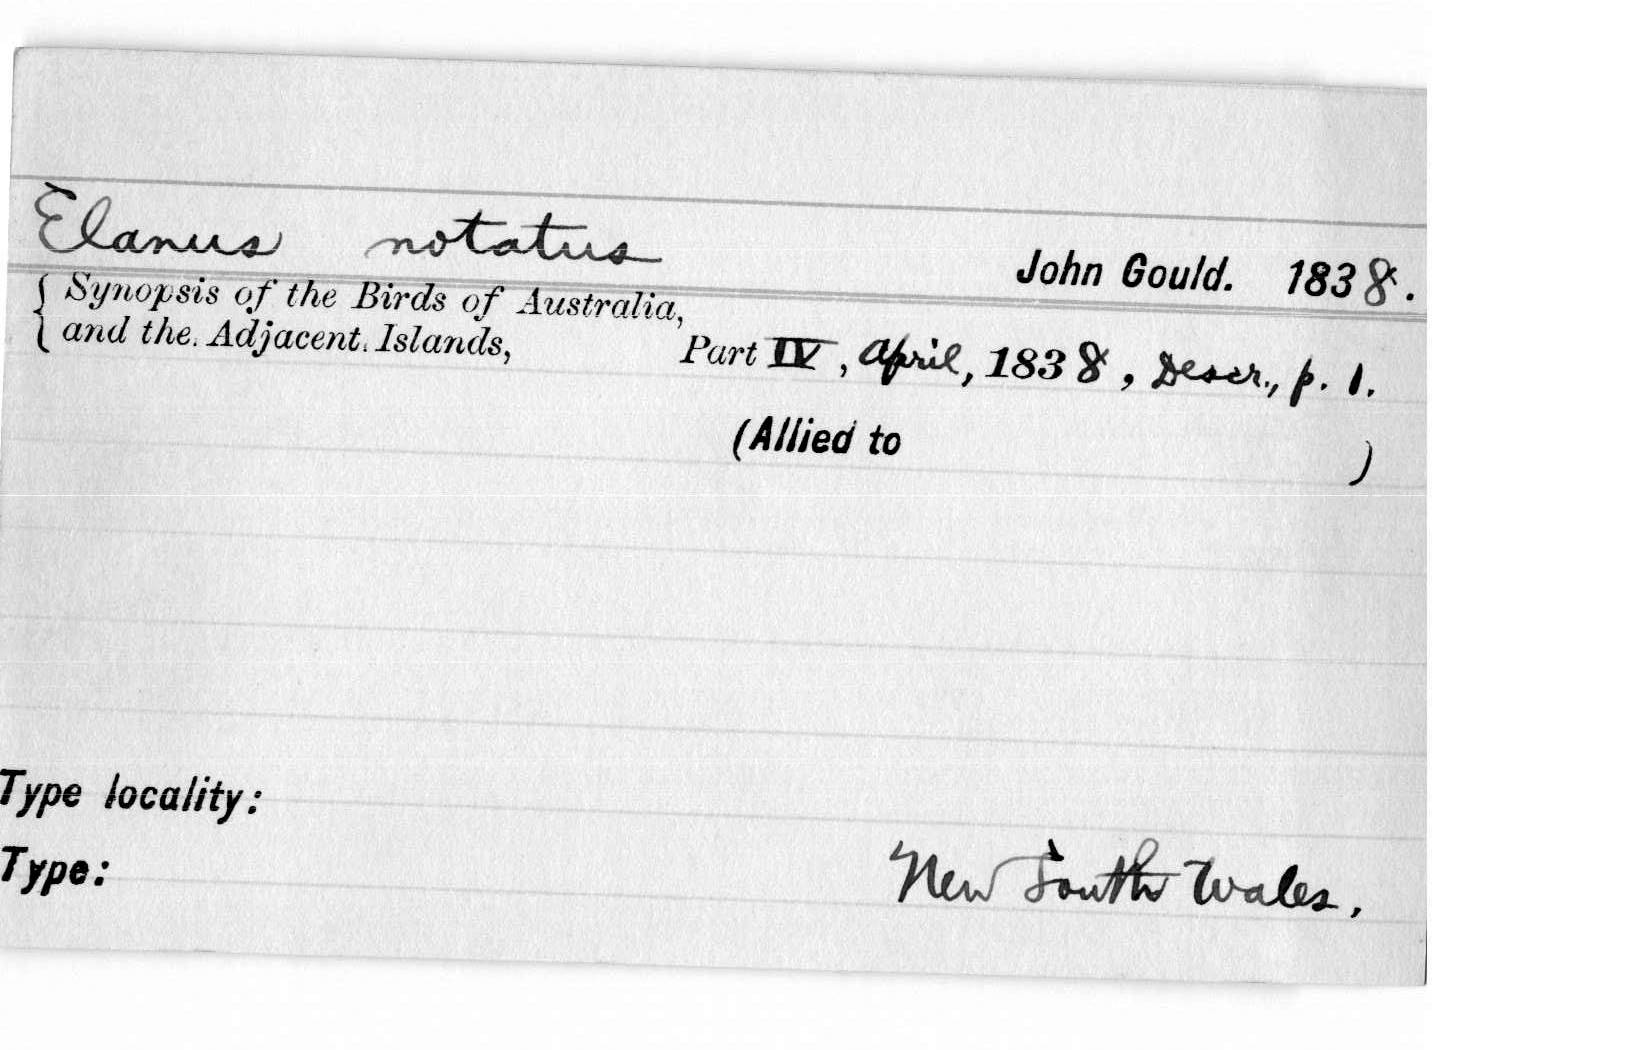 Elanus notatus John Gould. 1838.
Synopsis of the Birds of Australia,
and the Adjacent Islands, Part IV, April, 1838, Descr., p. 1.
(Allied to )
Type locality:
Type: New South Wales,